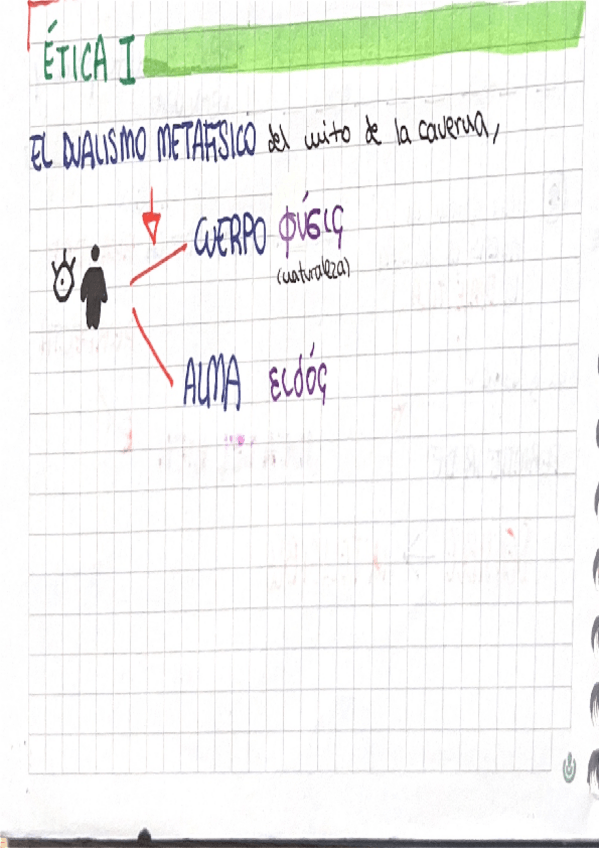 ÉTICA I
EL DUALISMO METAFÍSICO del mito de la caverna,
CUERPO φύσις
(naturaleza)
ALMA ειδός